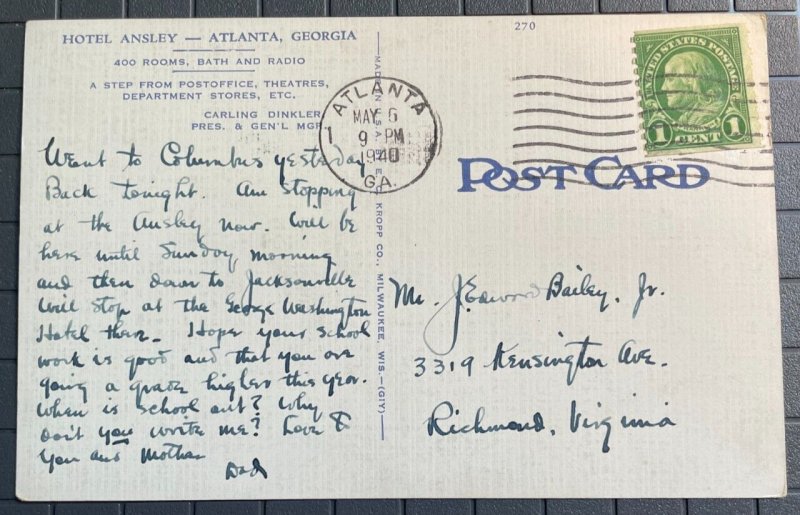 270
HOTEL ANSLEY — ATLANTA, GEORGIA
400 ROOMS, BATH AND RADIO
A STEP FROM POSTOFFICE, THEATRES,
DEPARTMENT STORES, ETC.
CARLING DINKLER
PRES. & GEN'L MGR.
Went to Columbus yesterday
Back tonight. Am stopping
at the Ansley now. Will be
here until Sunday morning
and then down to Jacksonville
Will stop at the George Washington
Hotel there. Hope your school
work is good and that you are
going a grade higher this year.
When is school out? Why
don't you write me? Love to
You and Mother
Dad
KROPP CO., MILWAUKEE, WIS.—(GIY)
ATLANTA
GA.
1
MAY 6
9 PM
1940
UNITED STATES POSTAGE
FRANKLIN
1 CENT 1
POST CARD
Mr. J. Edward Bailey, Jr.
3319 Kensington Ave.
Richmond, Virginia